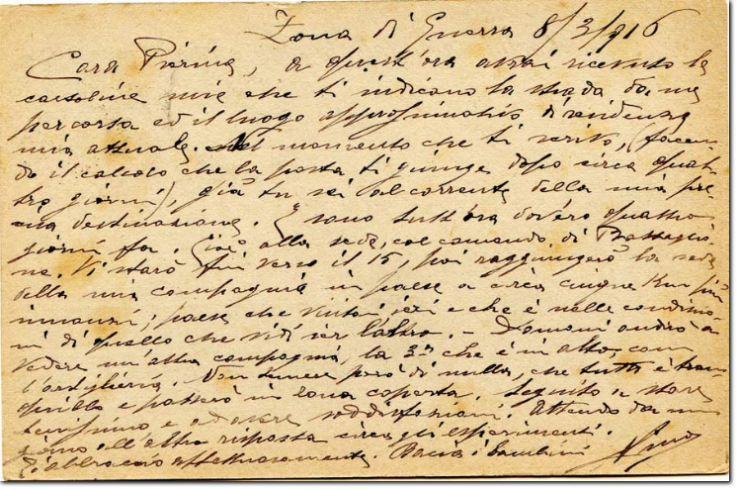 Zona di Guerra 8/3/916
Cara Pierina, a quest'ora avrai ricevuto le
cartoline mie che ti indicano la strada da me
percorsa ed il luogo approssimativo di residenza
mia attuale. Nel momento che ti scrivo, (facen-
do il calcolo che la posta ti giunge dopo circa quat-
tro giorni), già tu sei al corrente della mia pre-
cisa destinazione. E sono tutt'ora dov'ero quattro
giorni fa. Cioè alla sede, col comando di Battaglio-
ne. Vi starò fin verso il 15, poi raggiungerò la sede
della mia compagnia in paese a circa cinque Km più
innanzi; paese che visitai ieri e che è nelle condizio-
ni di quello che vidi ier l'altro. - Domani andrò a
vedere un'altra compagnia, la 3ª che è in alto, con
l'artiglieria. Non temere però di nulla, che tutto è tran-
quillo e passerò in zona coperta. Seguito a stare
benissimo e ad avere soddisfazioni. Attendo da un
giorno all'altro risposta circa gli esperimenti.
T'abbraccio affettuosamente. Bacia i bambini